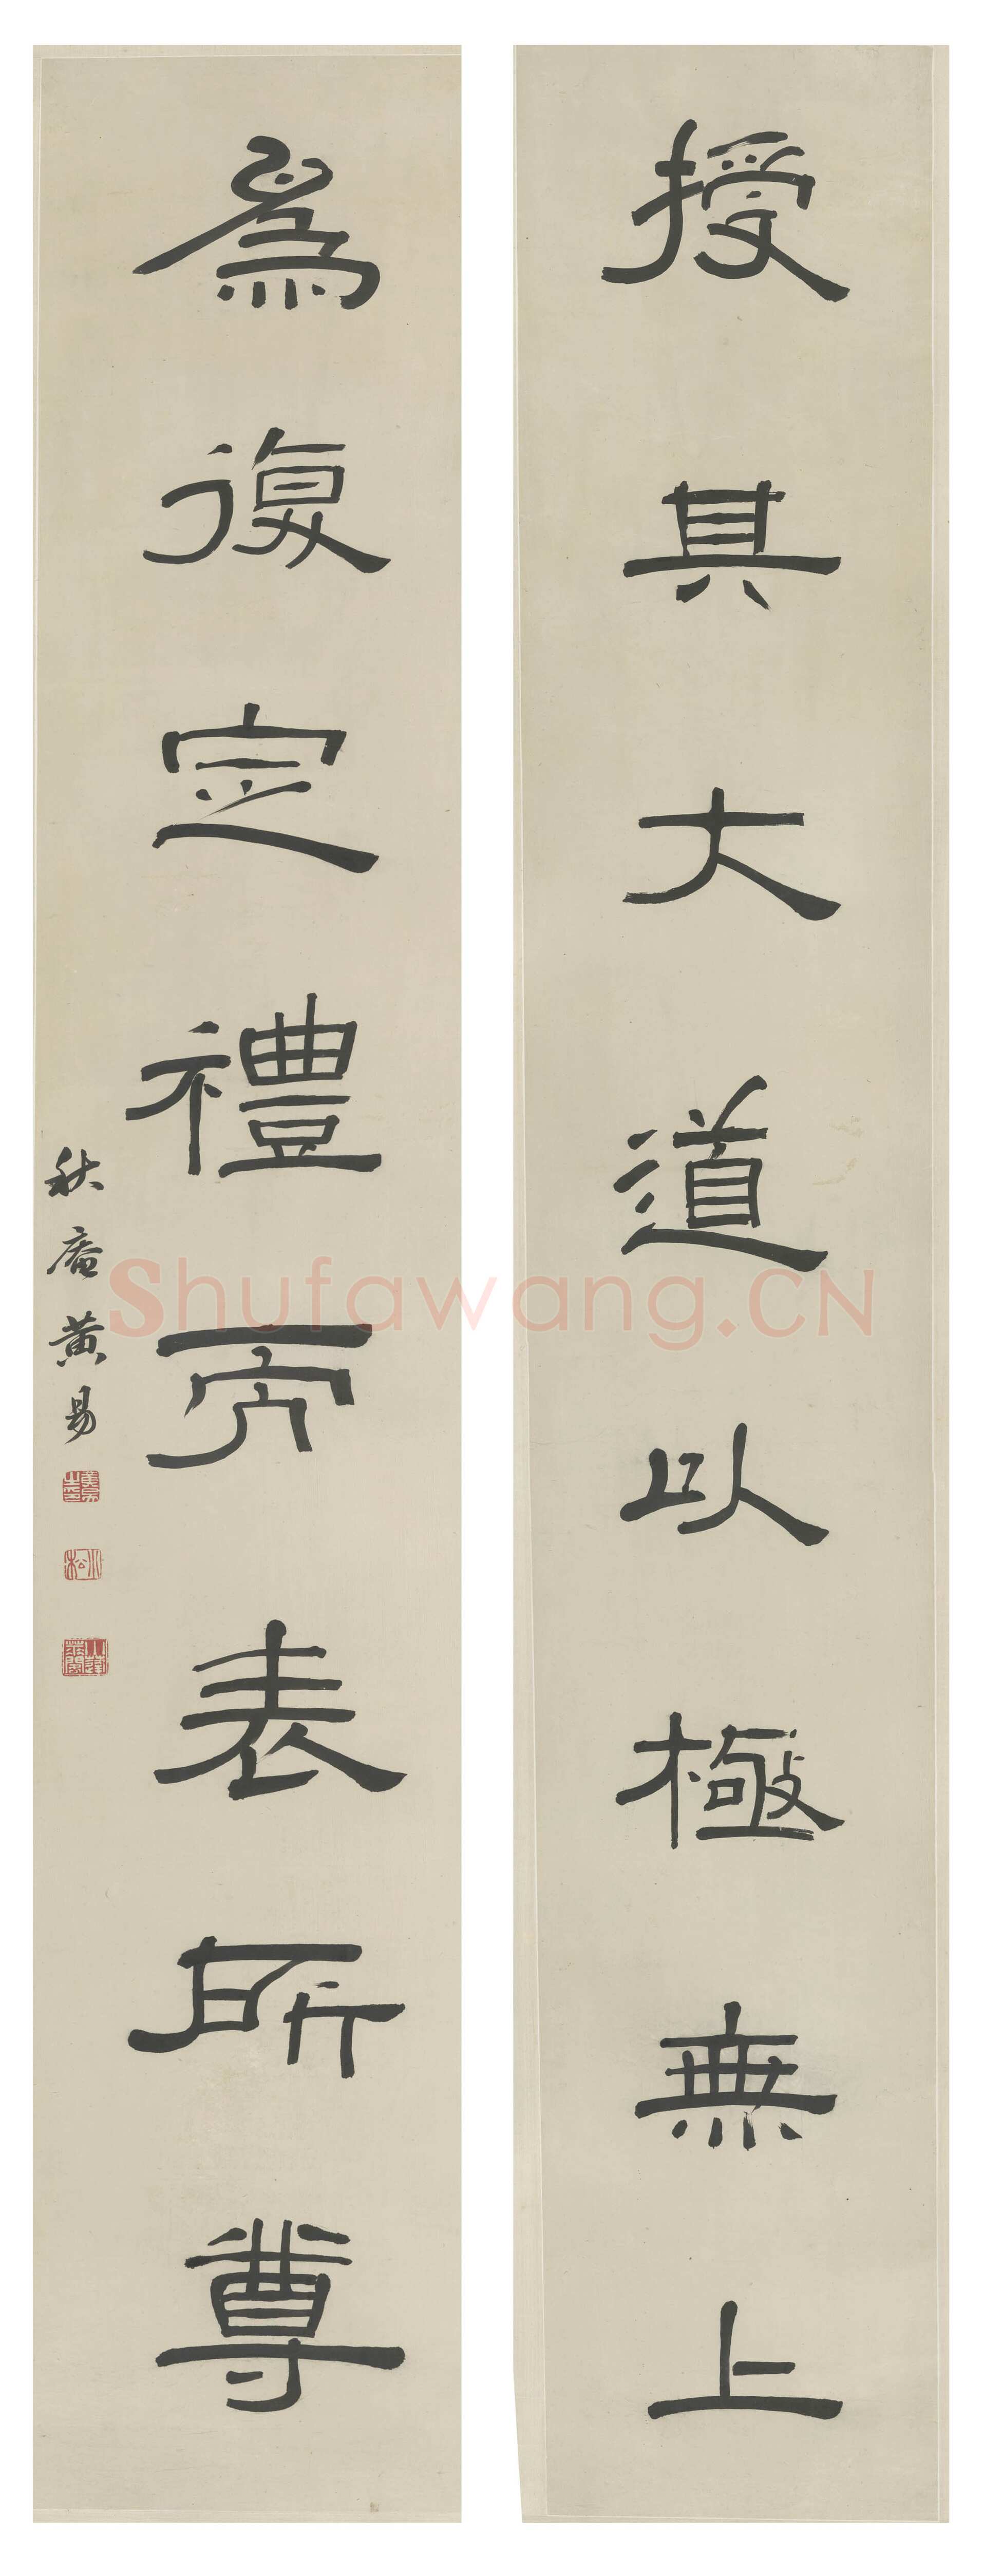 授其大道以極無上
為復定禮而表所尊
秋盦黃易
小松
Shufawang.CN